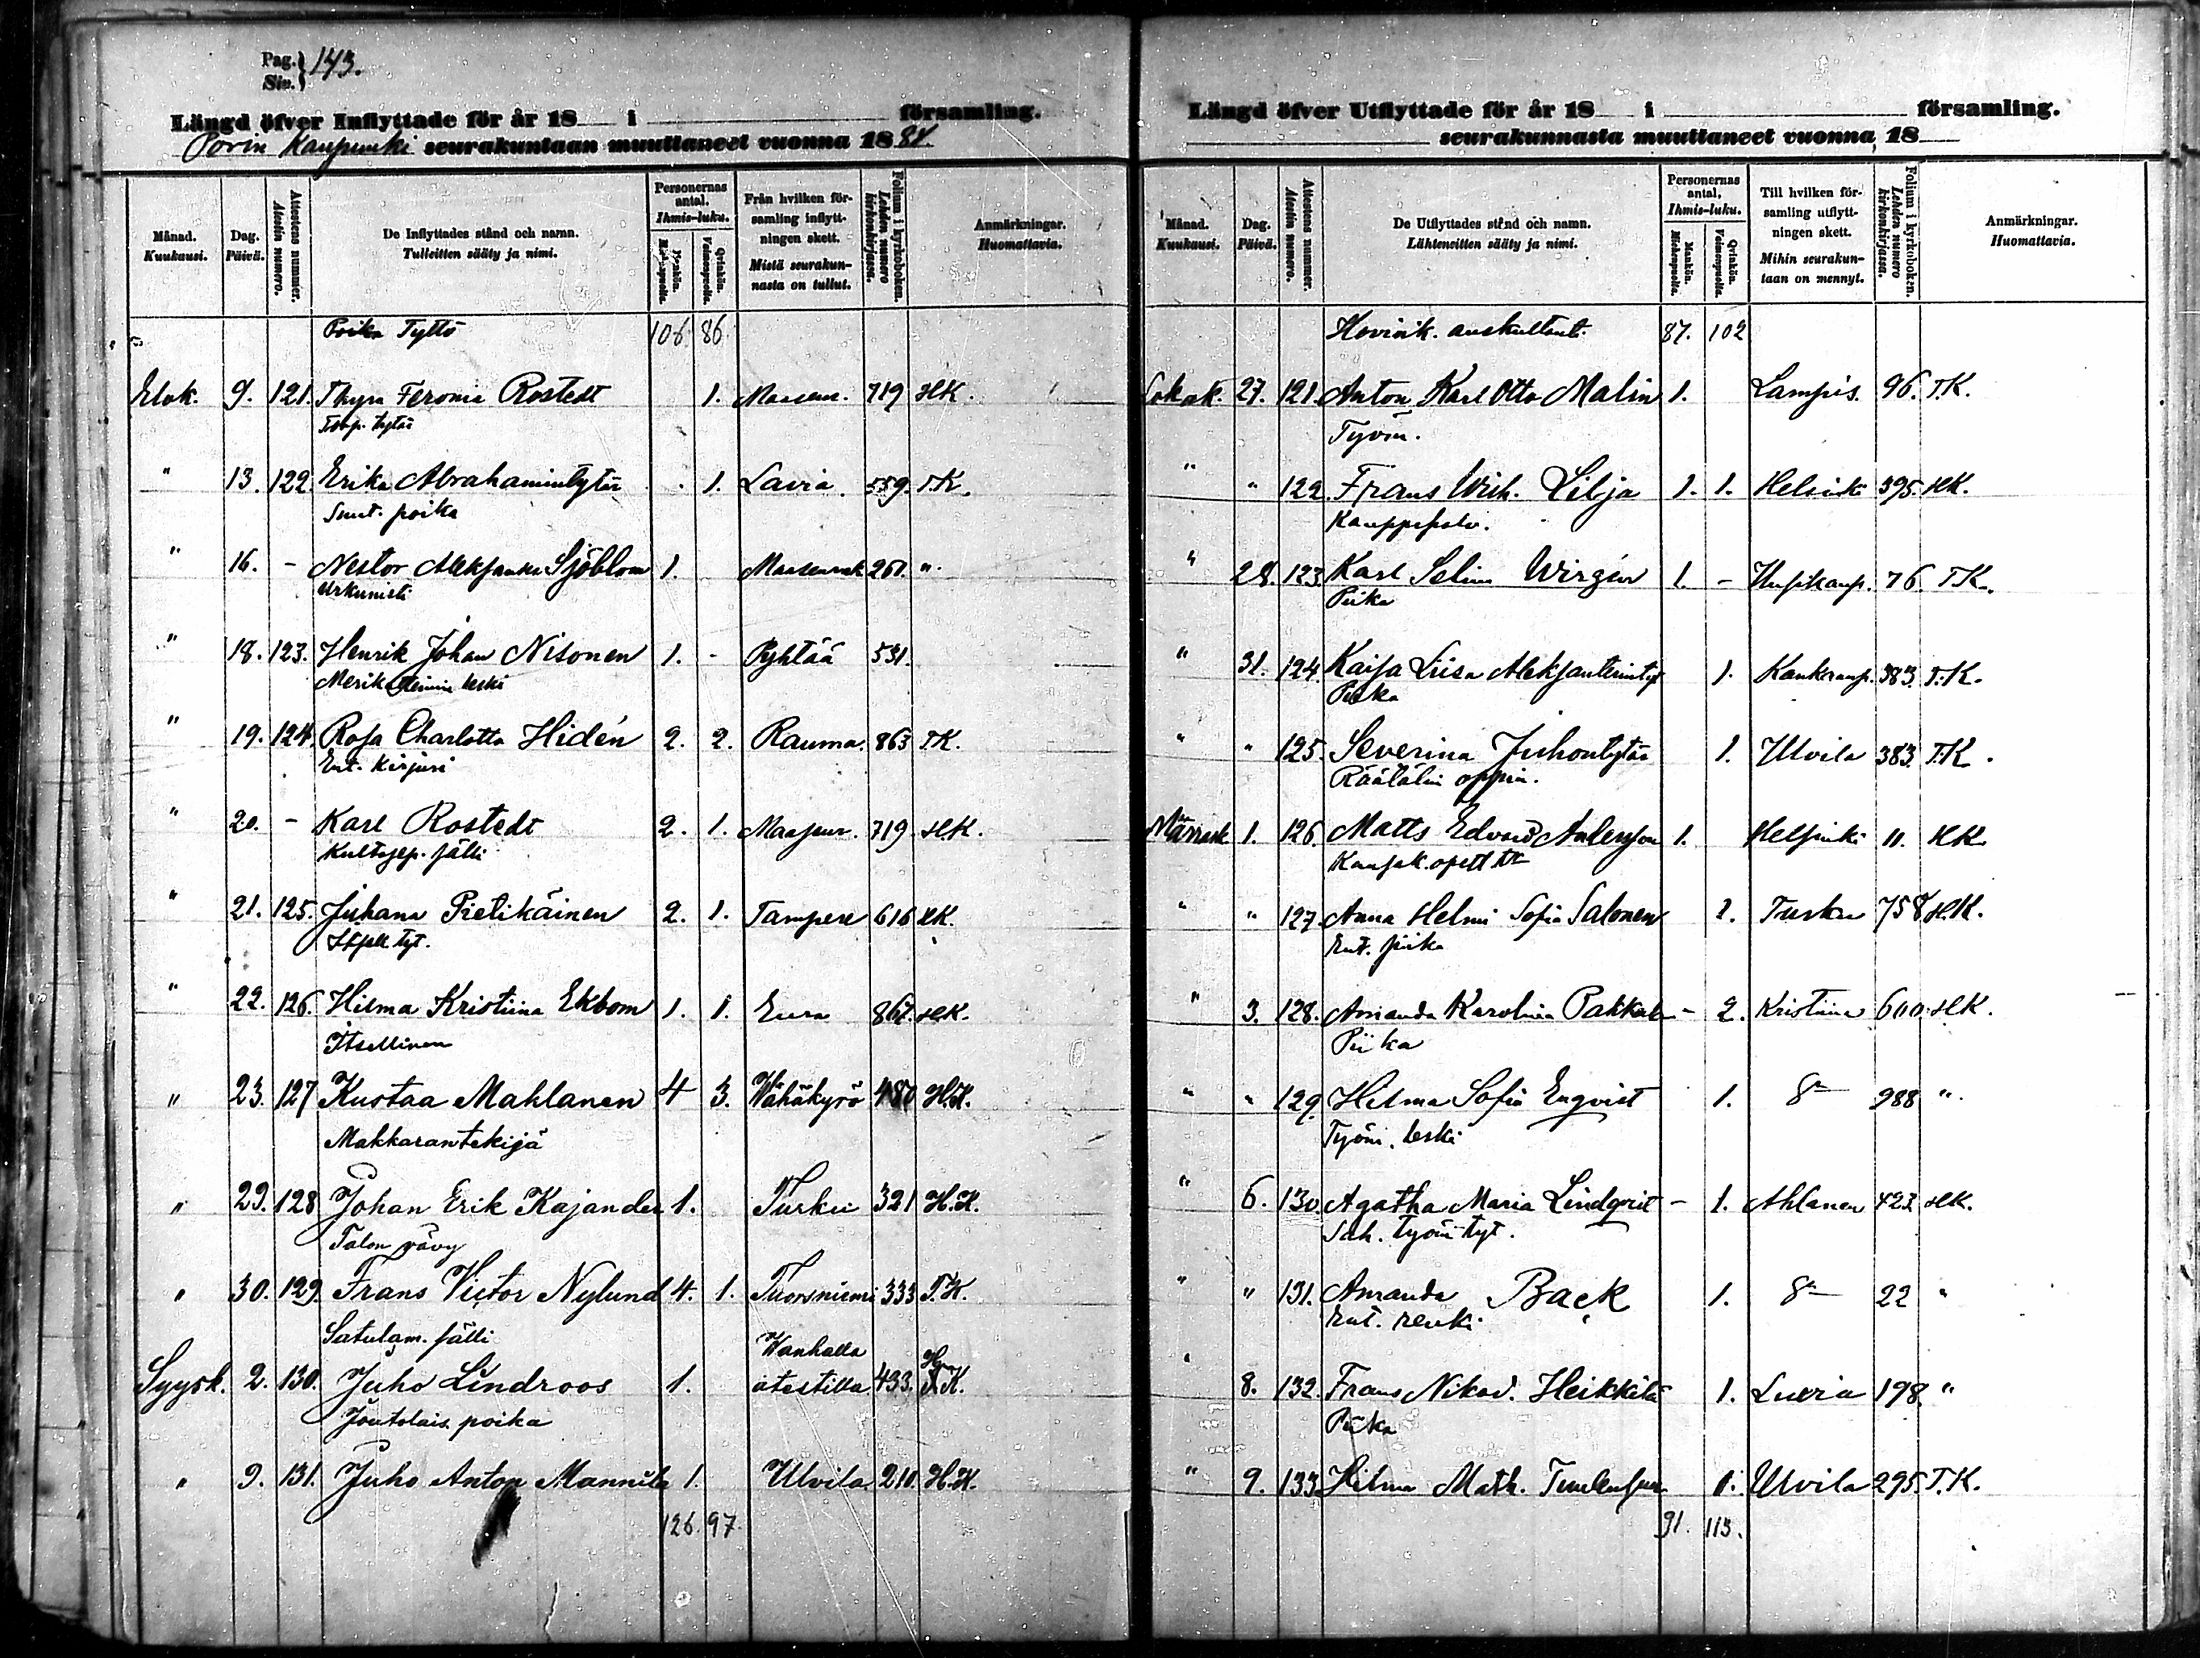 Pag. } 143.
Siv.
Längd öfver Inflyttade för år 18 i församling.
Porin Kaupunki seurakuntaan muuttaneet vuonna 1884.
Månad. Kuukausi. Dag. Päivä. Attestens nummer. Atestin numero. De Inflyttades stånd och namn. Tulleitten sääty ja nimi. Personernas antal. Ihmis-luku. Mankön. Miehenpuolta. Qvinkön. Vaimonpuolta. Från hvilken församling inflyttningen skett. Mistä seurakunnasta on tullut. Folium i kyrkoboken. Lehden numero kirkonkirjassa. Anmärkningar. Huomattavia.
Poika Tyttö 106. 86.
Elok. 9. 121. Thyra Feronia Rostedt 1. Maaseur. 719 H.K.
Torp. tytär
" 13. 122. Erika Abrahamintytär 1. Lavia. 559. T.K.
Suut. poika
" 16. - Nestor Aleksander Sjöblom 1. Maaseurak 261. "
Urkunisti
" 18. 123. Henrik Johan Nisonen 1. - Pyhtää 531.
Merikapteinin leski
" 19. 124. Rosa Charlotta Hidén 2. 2. Rauma. 863 T.K.
Ent. Kirjuri
" 20. - Karl Rostedt 2. 1. Maaseur. 719. H.K.
Kultasep. sälli
" 21. 125. Juhana Pietikäinen 2. 1. Tampere 616 H.K.
Itsell. tyt.
" 22. 126. Hilma Kristiina Ekbom 1. 1. Eura 867. H.K.
Itsellinen
" 23. 127 Kustaa Mahlanen 4 3. Wähäkyrö 480 H.K.
Makkarantekijä
" 29. 128 Johan Erik Kajander 1. Turku 321 H.K.
Talon vävy
" 30. 129. Frans Victor Nylund 4. 1. Tuorsniemi 333 T.K.
Satulam. sälli
Syysk. 2. 130. Juho Lindroos 1. Wanhalla atestilla 433. K.
Joutolais. poika
" 9. 131. Juho Anton Mannila 1. Ulvila 210. H.K.
126. 97.
Längd öfver Utflyttade för år 18 i församling.
seurakunnasta muuttaneet vuonna 18
Månad. Kuukausi. Dag. Päivä. Attestens nummer. Atestin numero. De Utflyttades stånd och namn. Lähteneitten sääty ja nimi. Personernas antal. Ihmis-luku. Mankön. Miehenpuolta. Qvinkön. Vaimonpuolta. Till hvilken församling utflyttningen skett. Mihin seurakuntaan on mennyt. Folium i kyrkoboken. Lehden numero kirkonkirjassa. Anmärkningar. Huomattavia.
Hovioik. auskultant. 87. 102
Lokak. 27. 121. Anton Karl Otto Malin 1. Lampis. 96. T.K.
Työm.
" " 122. Frans Wilh. Lilja 1. 1. Helsinki 395. H.K.
Kauppapalv.
" 28. 123. Karl Selim Wirzén 1. - Uusikaup. 76. T.K.
Piika
" 31. 124. Kaisa Liisa Aleksanterintyt 1. Kankaanp. 383. T.K.
Piika
" " 125. Severina Juhontytär 1. Ulvila 383. T.K.
Räätälin oppip.
Marrask 1. 126. Matts Edvard Andersson 1. Helsinki 11. H.K.
Kansak. opett.
" " 127. Anna Helmi Sofia Salonen 1. Turku 758 H.K.
Ent. piika
" 3. 128. Amanda Karolina Pakkala - 2. Kristiina 600. H.K.
Piika
" " 129. Hilma Sofia Enqvist 1. 988 "
Työm. leski
" 6. 130. Agatha Maria Lindqvist - 1. Ahlanen 423. H.K.
Sah. työm tyt.
" " 131. Amanda Back 1. 22 "
Ent. renki
" 8. 132. Frans Nikod. Heikkilä 1. Luvia 198. "
Piika
" 9. 133 Hilma Math. 1. Ulvila 295. T.K.
91. 113.